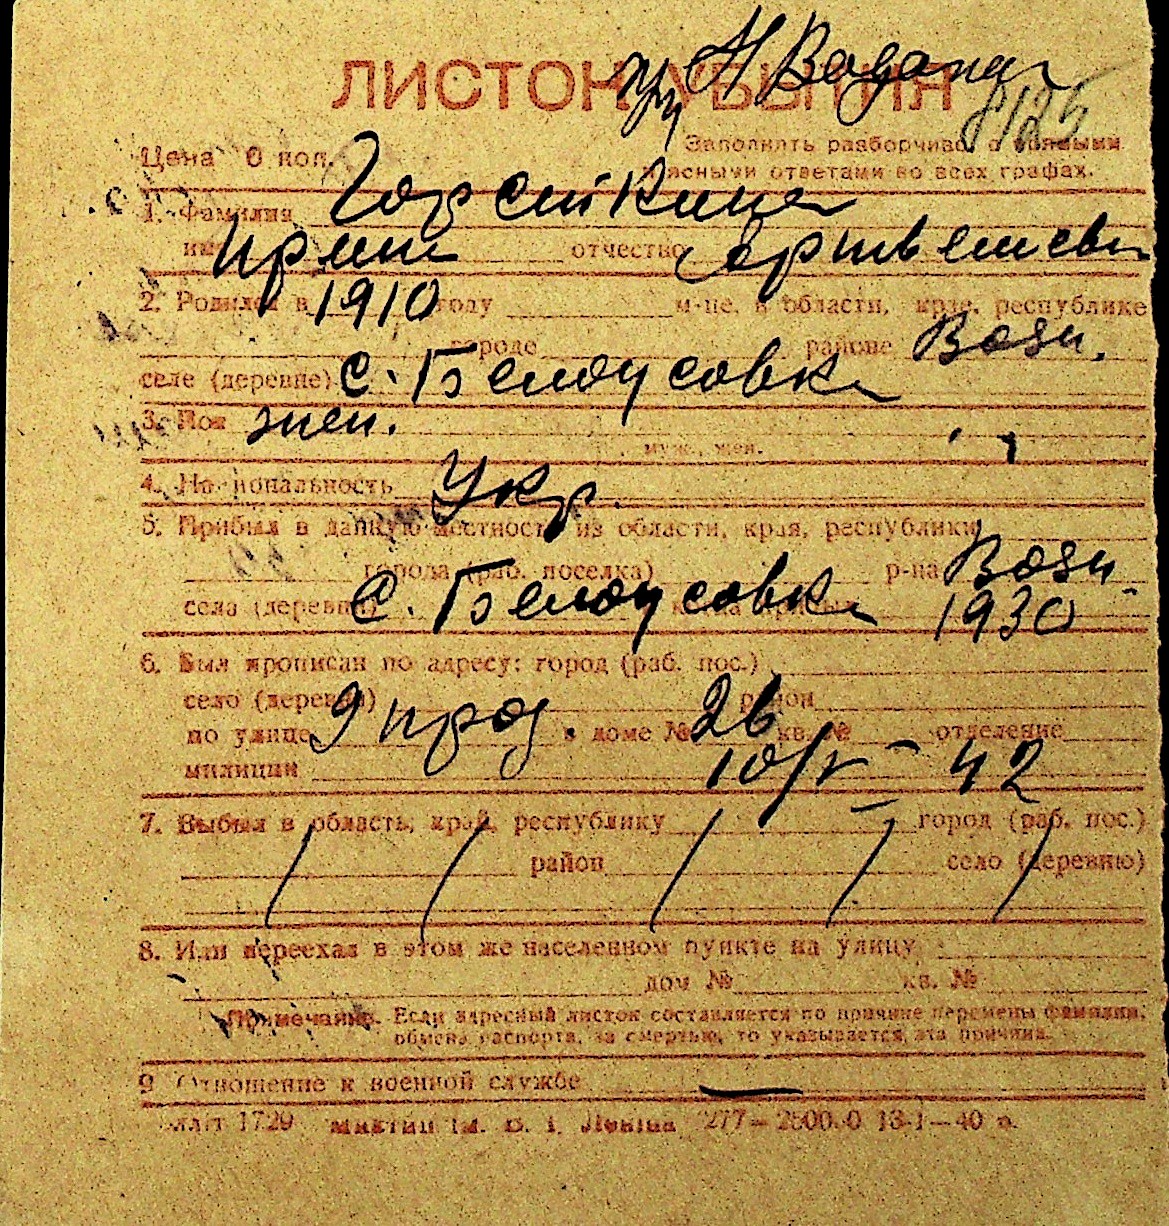 ЛИСТОК УБЫТИЯ
125
Цена 0 коп.
Заполнять разборчиво, с прямыми
и ясными ответами во всех графах.
1. Фамилия
имя Ирина отчество
2. Родился в 1910 году м-це, в области, крае, республике
городе районе Возн.
селе (деревне) с. Белоусовка
3. Пол жен.
муж., жен.
4. Национальность Укр.
5. Прибыл в данную местность из области, края, республики
города (раб. поселка) р-на Возн.
села (деревни) с. Белоусовка 1930
6. Был прописан по адресу: город (раб. пос.)
село (деревня) район
по улице 9 прод в доме № 26 кв. № отделение
милиции 10/V - 42
7. Выбыл в область, край, республику город (раб. пос.)
район село (деревню)
8. Или переехал в этом же населенном пункте на улицу
дом № кв. №
Примечание. Если адресный листок составляется по причине перемены фамилии,
обмена паспорта, за смертью, то указывается эта причина.
9 Отношение к военной службе —
1729 277— 13-1—40 р.